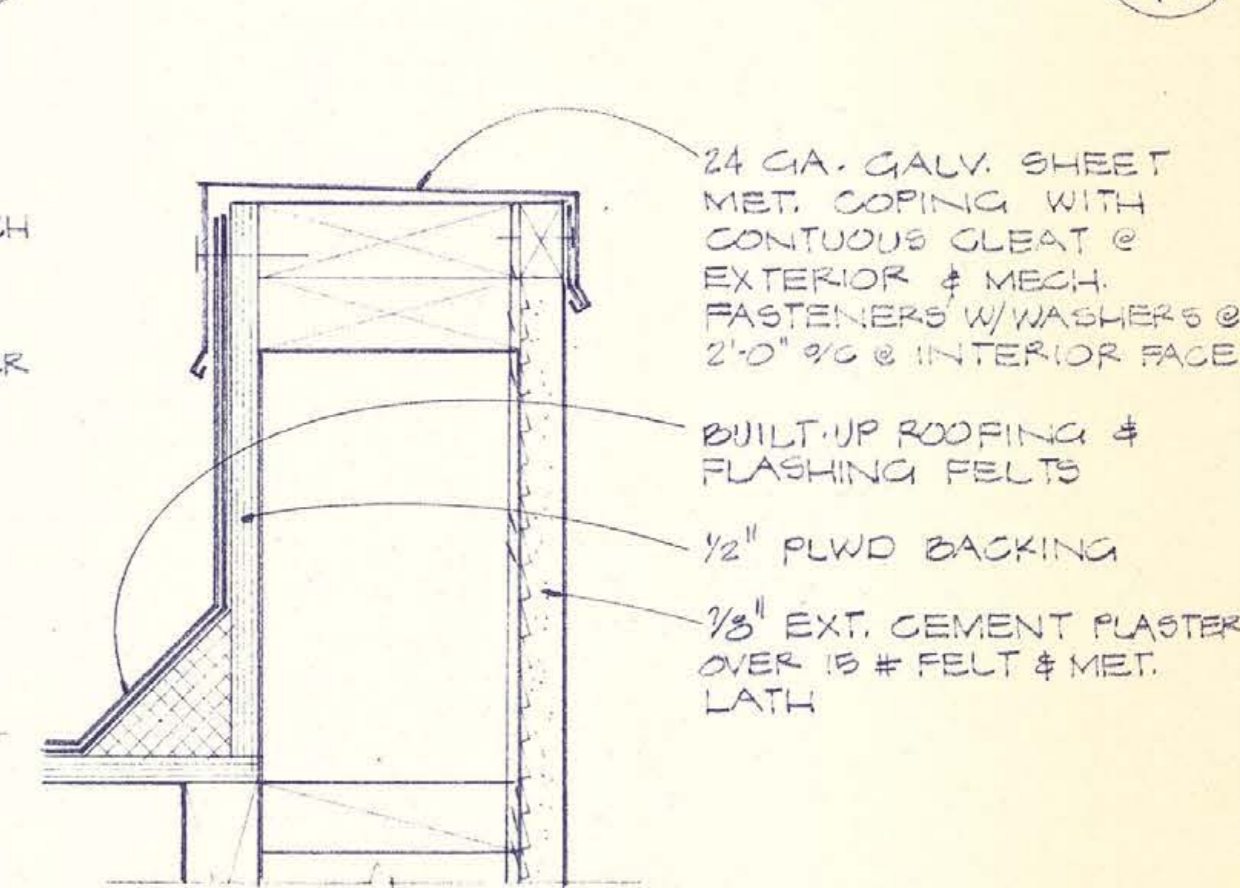 24 GA. GALV. SHEET
MET. COPING WITH
CONTUOUS CLEAT @
EXTERIOR & MECH.
FASTENERS W/WASHERS @
2'-0" O/C @ INTERIOR FACE
BUILT-UP ROOFING &
FLASHING FELTS
1/2" PLWD BACKING
7/8" EXT. CEMENT PLASTER
OVER 15 # FELT & MET.
LATH